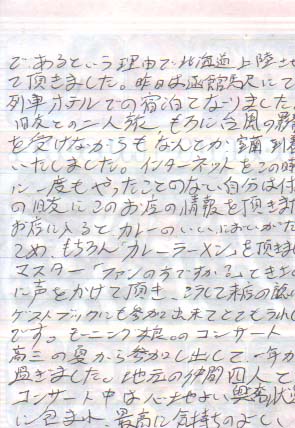 であるという理由で北海道上陸させ
て頂きました。昨日は函館駅にて
列車ホテルでの宿泊でなりました
旧友との二人旅、もろに台風の影響
を受けながらも、なんとか室蘭到着
いたしました。インターネットをこの時
に一度もやったことのない自分は付
の旧友にこのお店の情報を頂きま
お店に入るとカレーのいいにおいがた
ため、もちろん「カレーラーメン」を頂きまし
マスター「ファンの方ですか?」ときさく
に声をかけて頂き、こうして来店の
ゲストブックにも参加出来てとてもうれし
です。モーニング娘。のコンサート
高三の夏から参加し出して、一年が
過ぎました。地元の仲間四人と
コンサート中は心地よい興奮状
に包まれ、最高に気持ちのよく、